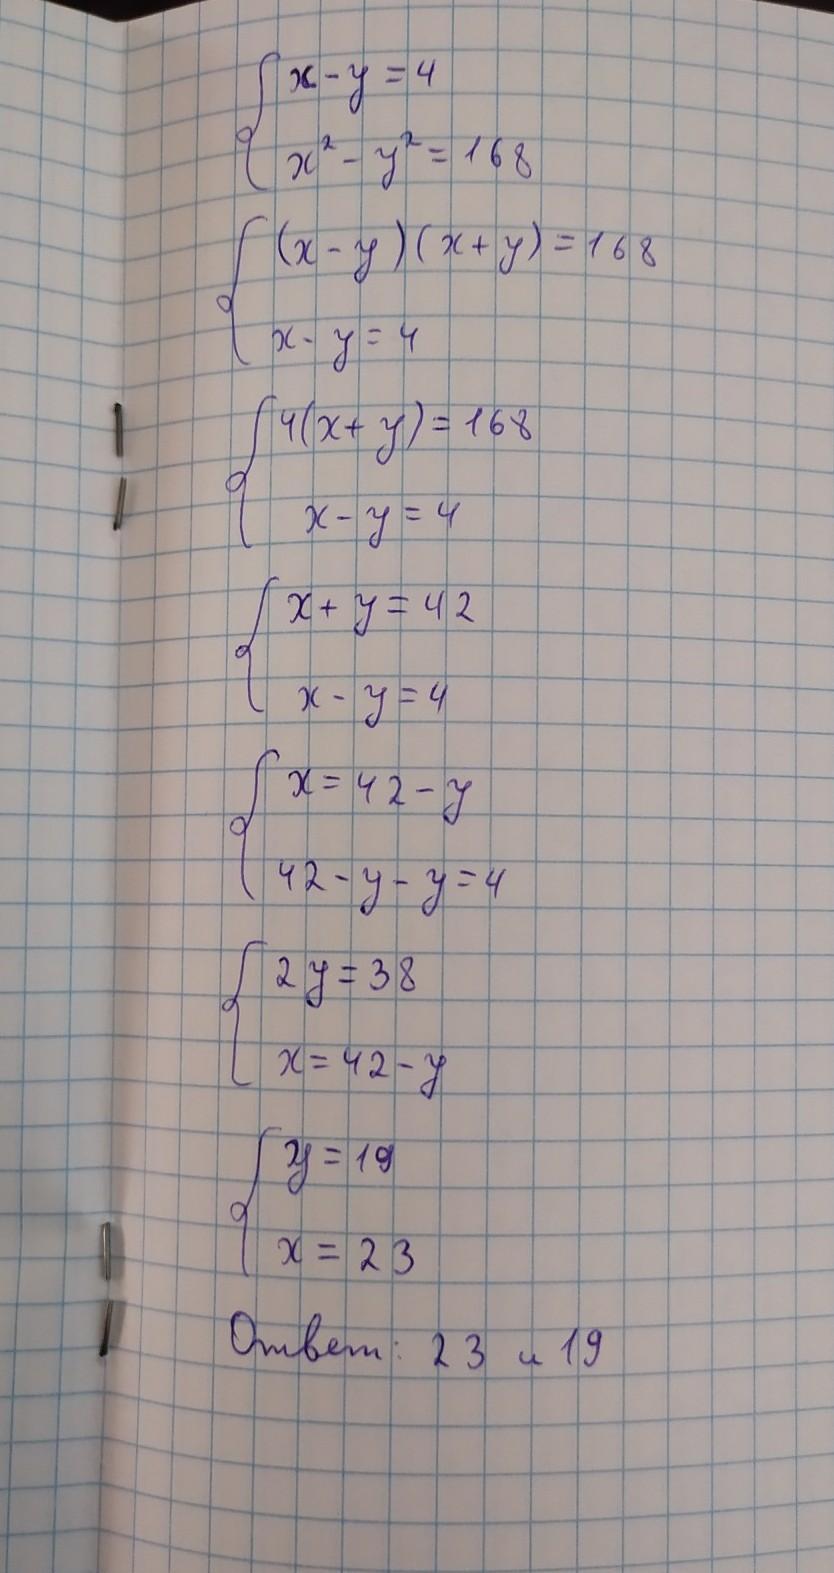 x - y = 4
x² - y² = 168
(x - y)(x + y) = 168
x - y = 4
4(x + y) = 168
x - y = 4
x + y = 42
x - y = 4
x = 42 - y
42 - y - y = 4
2y = 38
x = 42 - y
y = 19
x = 23
Ответ: 23 и 19